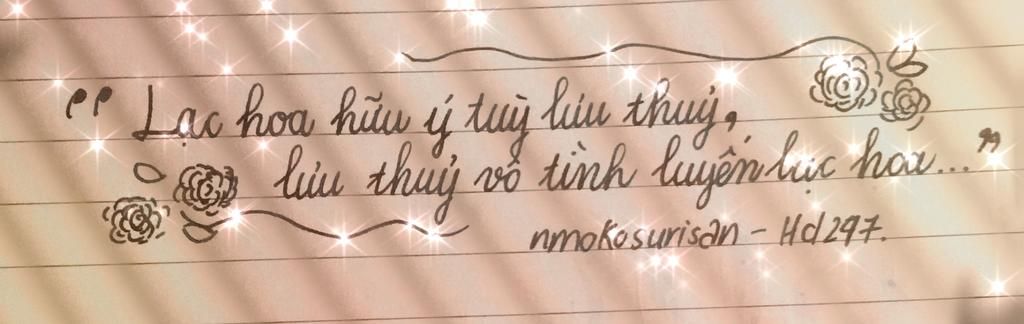 “ Lạc hoa hữu ý tuỳ lưu thuỷ,
lưu thuỷ vô tình luyến lạc hoa...”
nmokosurisan - Hd297.